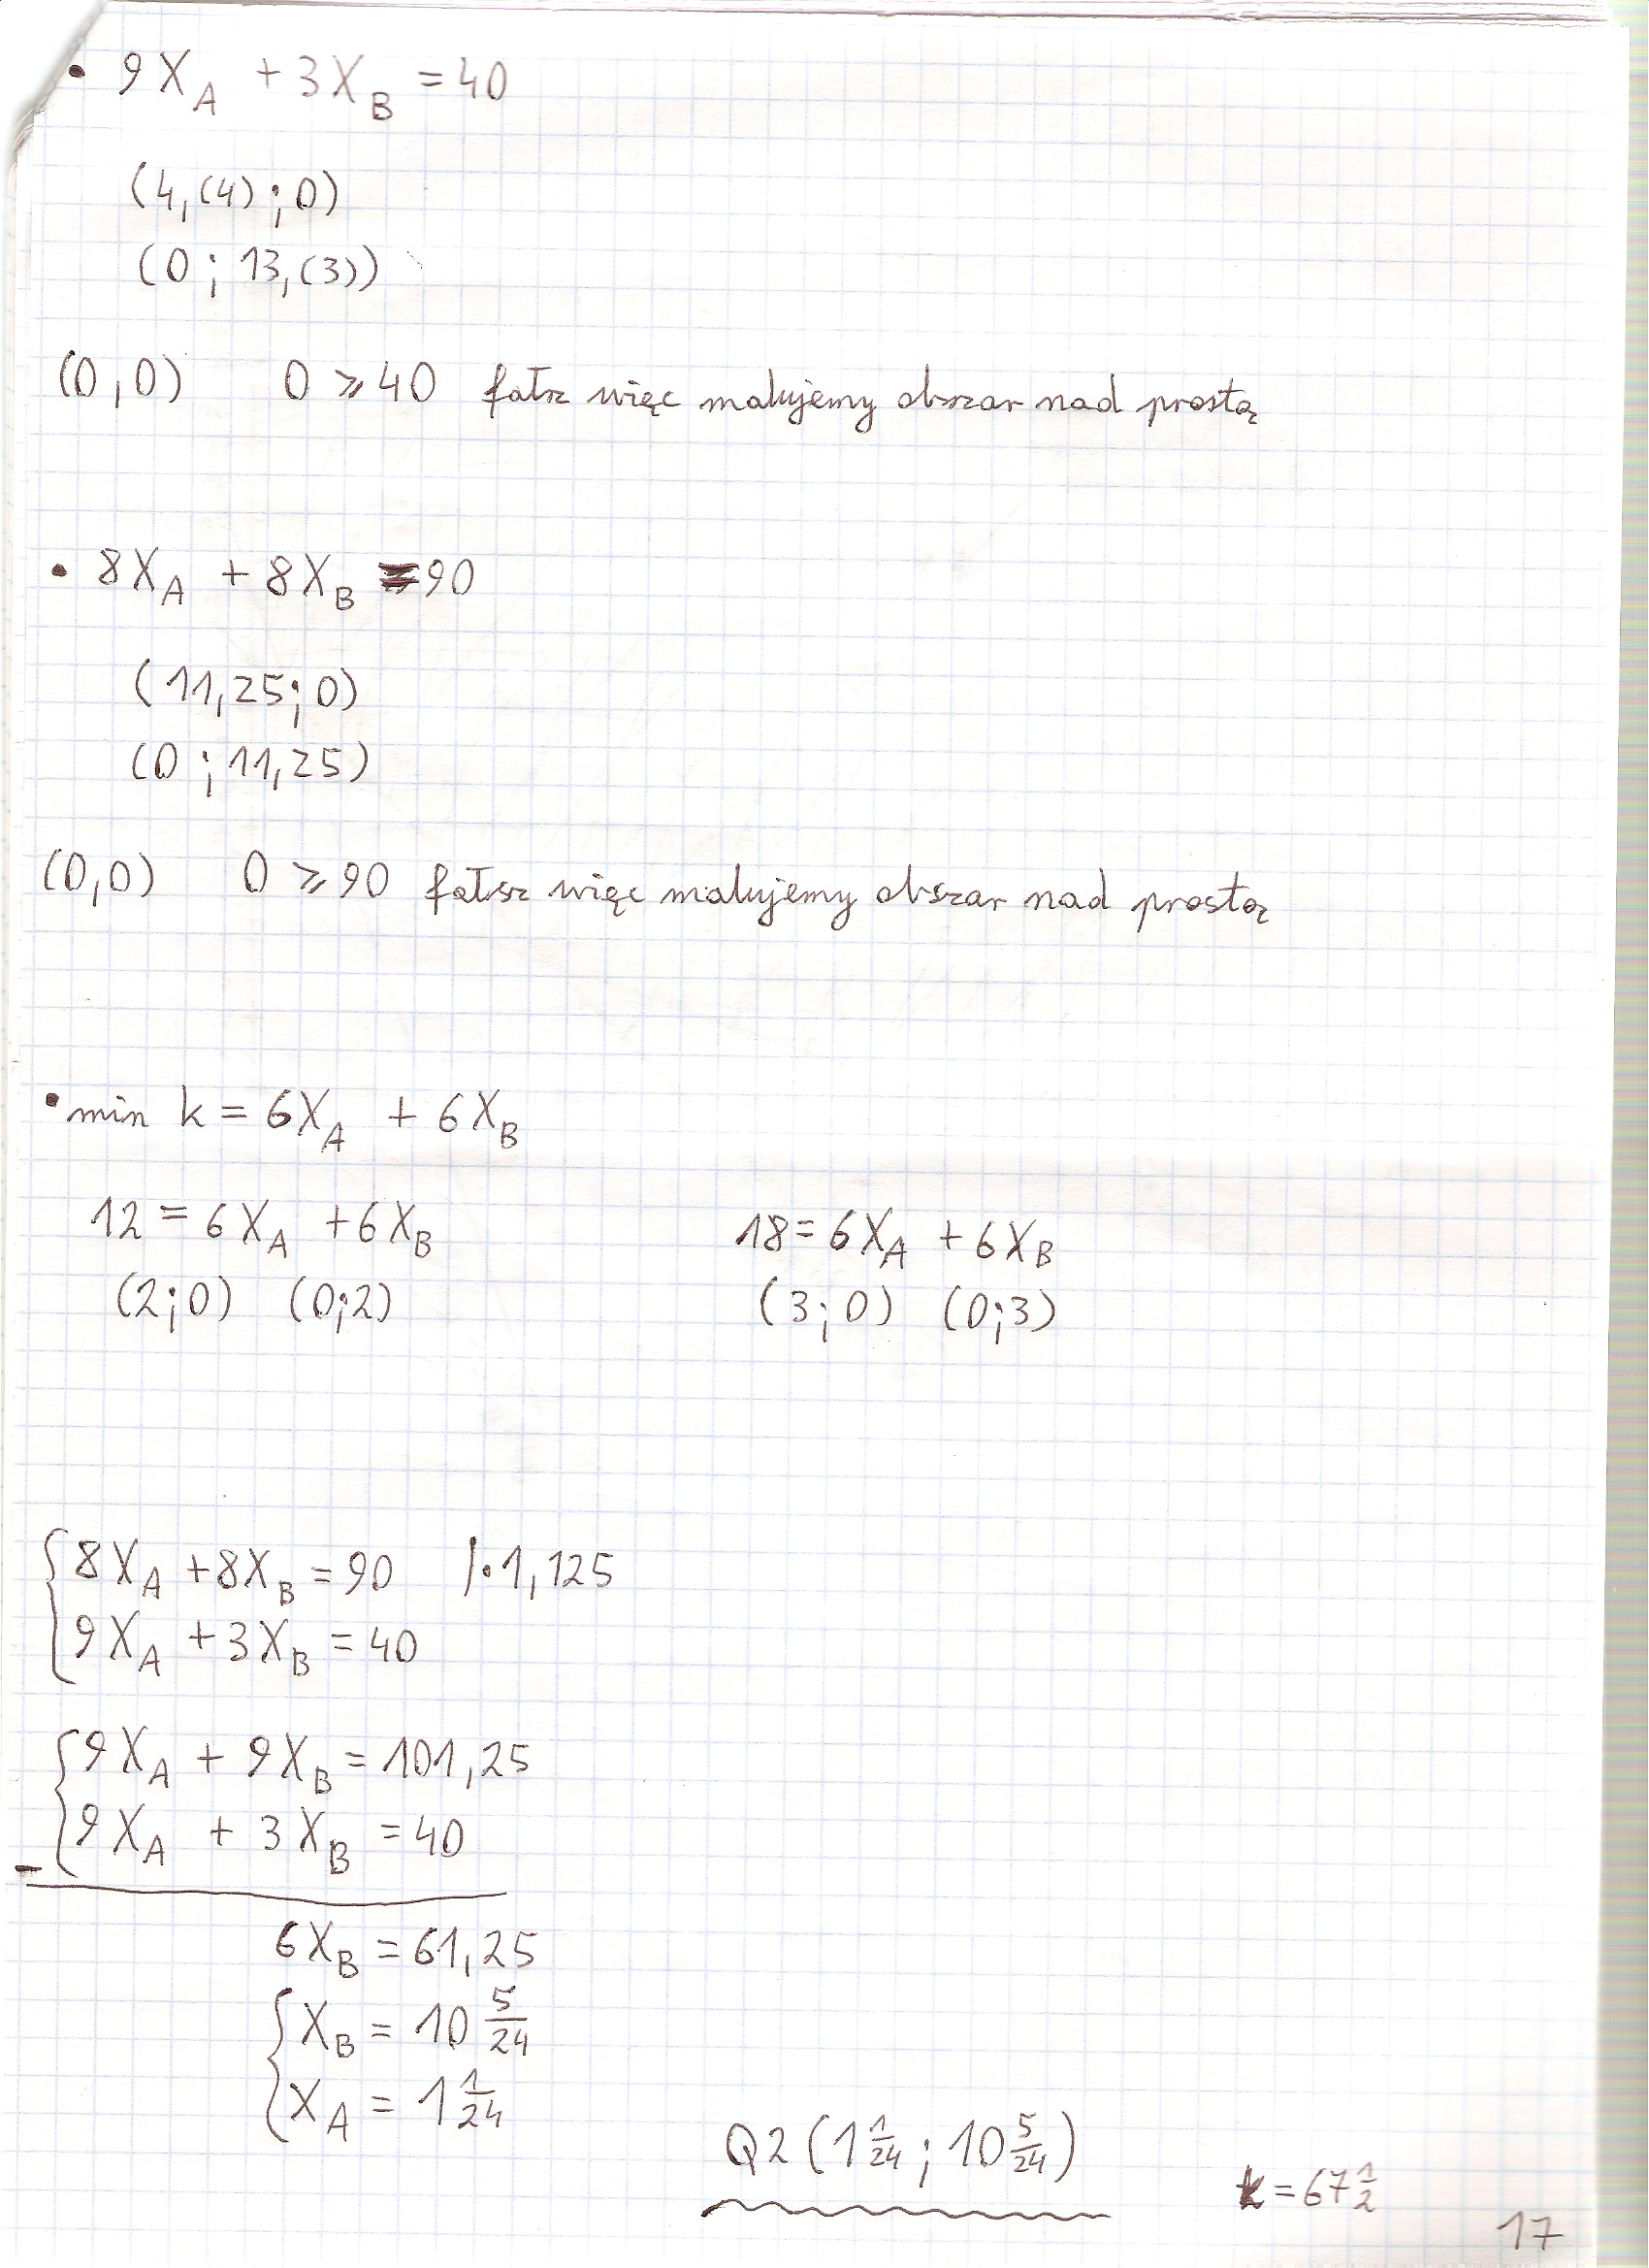 • 9X_A + 3X_B = 40
(4,(4) ; 0)
(0 ; 13,(3))
(0,0) 0 ⩾ 40 fałsz więc malujemy obszar nad prostą
• 8X_A + 8X_B = 90
(11,25 ; 0)
(0 ; 11,25)
(0,0) 0 ⩾ 90 fałsz więc malujemy obszar nad prostą
• min k = 6X_A + 6X_B
12 = 6X_A + 6X_B 18 = 6X_A + 6X_B
(2;0) (0;2) (3;0) (0;3)
8X_A + 8X_B = 90 /·1,125
9X_A + 3X_B = 40
9X_A + 9X_B = 101,25
- 9X_A + 3X_B = 40
6X_B = 61,25
X_B = 10 5/24
X_A = 1 1/24
Q2 (1 1/24 ; 10 5/24)
k = 67 1/2
17